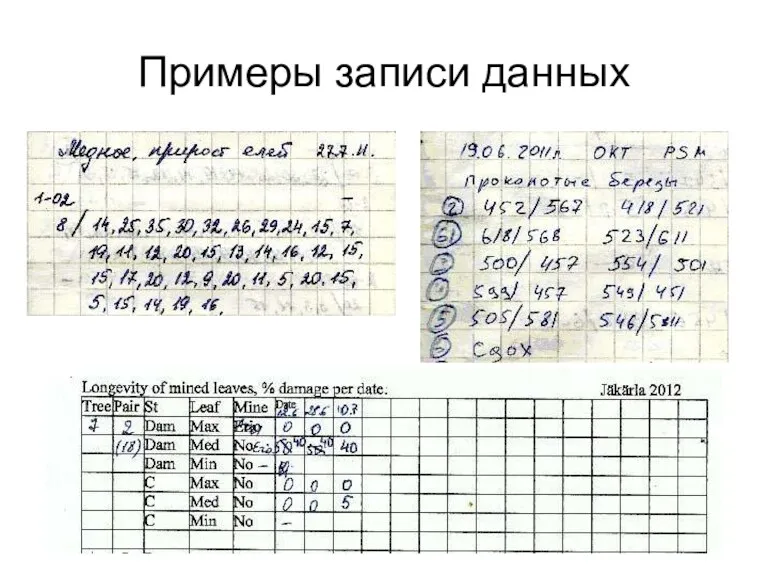 Примеры записи данных
Медное, прирост елей 27.7.11.
1-02 –
8/ 14, 25, 35, 30, 32, 26, 29, 24, 15, 7,
19, 11, 12, 20, 15, 13, 14, 16, 12, 15,
15, 17, 20, 12, 9, 20, 11, 5, 20, 15,
5, 15, 14, 19, 16.
19.06.2011г. ОКТ PSM
Проколотые березы
452/567 418/521
618/568 523/611
500/457 554/501
599/457 549/451
5 505/581 546/
Сдох
Longevity of mined leaves, % damage per date. Jäkärla 2012
Tree Pair St Leaf Mine Date 10.7
7 2 Dam Max 0 0 0
(18) Dam Med No Erio 40 40 40
Dam Min No –
C Max No 0 0 0
C Med No 0 0 5
C Min No –